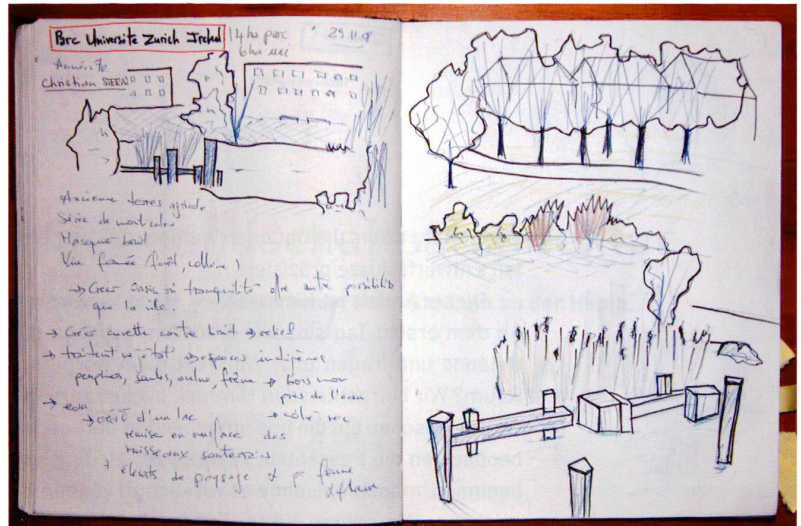 Parc Université Zurich Irchel
14ha parc
6ha uni
Années 70
Christian STERN
Ancienne terres agricole
Série de monticules
Masque bruit
Vue fermée (forêt, colline)
→ Créer oasis de tranquilité offre autre possibilité
que la ville.
→ Créer cuvette contre bruit → relief
→ traitent végétat → espaces indigènes
peupliers, saules, aulne, frêne → bois mou
pionniers
→ eau → colonisé
→ créat d'un lac
remise en surface des
ruisseaux souterrains
+ élements de paysage pr faune
& flore